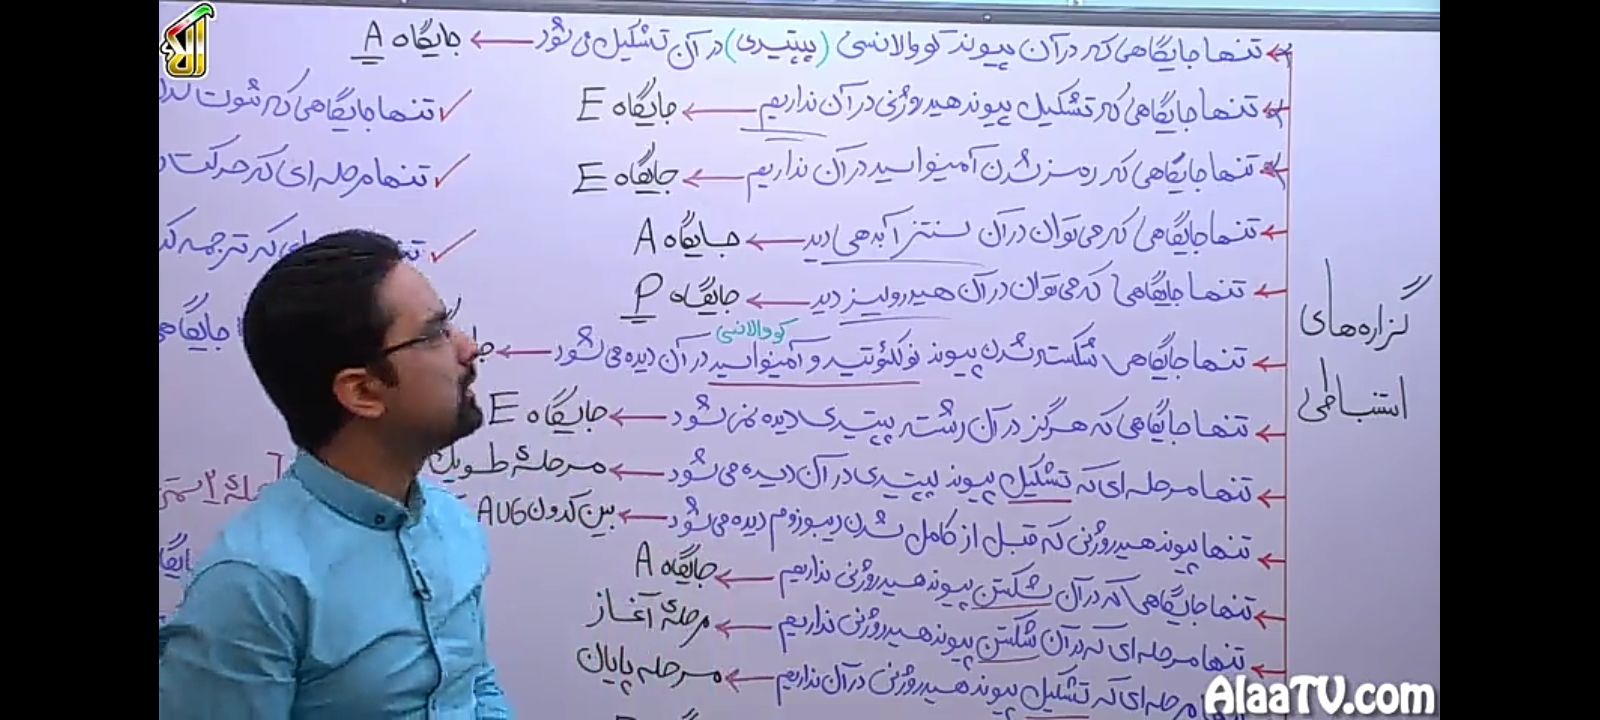 تنها جایگاهی که در آن پیوند کووالانسی (پپتیدی) در آن تشکیل می‌شود ← جایگاه A
تنها جایگاهی که تشکیل پیوند هیدروژنی در آن نداریم ← جایگاه E
تنها جایگاهی که رمز شدن آمینواسید در آن نداریم ← جایگاه E
تنها جایگاهی که می‌توان در آن سنتز آبدهی دید ← جایگاه A
تنها جایگاهی که می‌توان در آن هیدرولیز دید ← جایگاه P
کووالانسی
تنها جایگاهی شکسته شدن پیوند نوکلئوتید و آمینواسید در آن دیده می‌شود ←
تنها جایگاهی که هرگز در آن رشته پپتیدی دیده نمی‌شود ← جایگاه E
تنها مرحله‌ای که تشکیل پیوند پپتیدی در آن دیده می‌شود ← مرحلهٔ طویل
تنها پیوند هیدروژنی که قبل از کامل شدن ریبوزوم دیده می‌شود ← بین کدون AUG
تنها جایگاهی که در آن شکستن پیوند هیدروژنی نداریم ← جایگاه A
تنها مرحله‌ای که در آن شکستن پیوند هیدروژنی نداریم ← مرحلهٔ آغاز
مرحله‌ای که تشکیل پیوند هیدروژنی در آن نداریم ← مرحله پایان
گزاره‌های
استنباطی
✓ تنها جایگاهی که
✓ تنها مرحله‌ای که حرکت
که ترجمه
جایگاهی
الا
AlaaTV.com